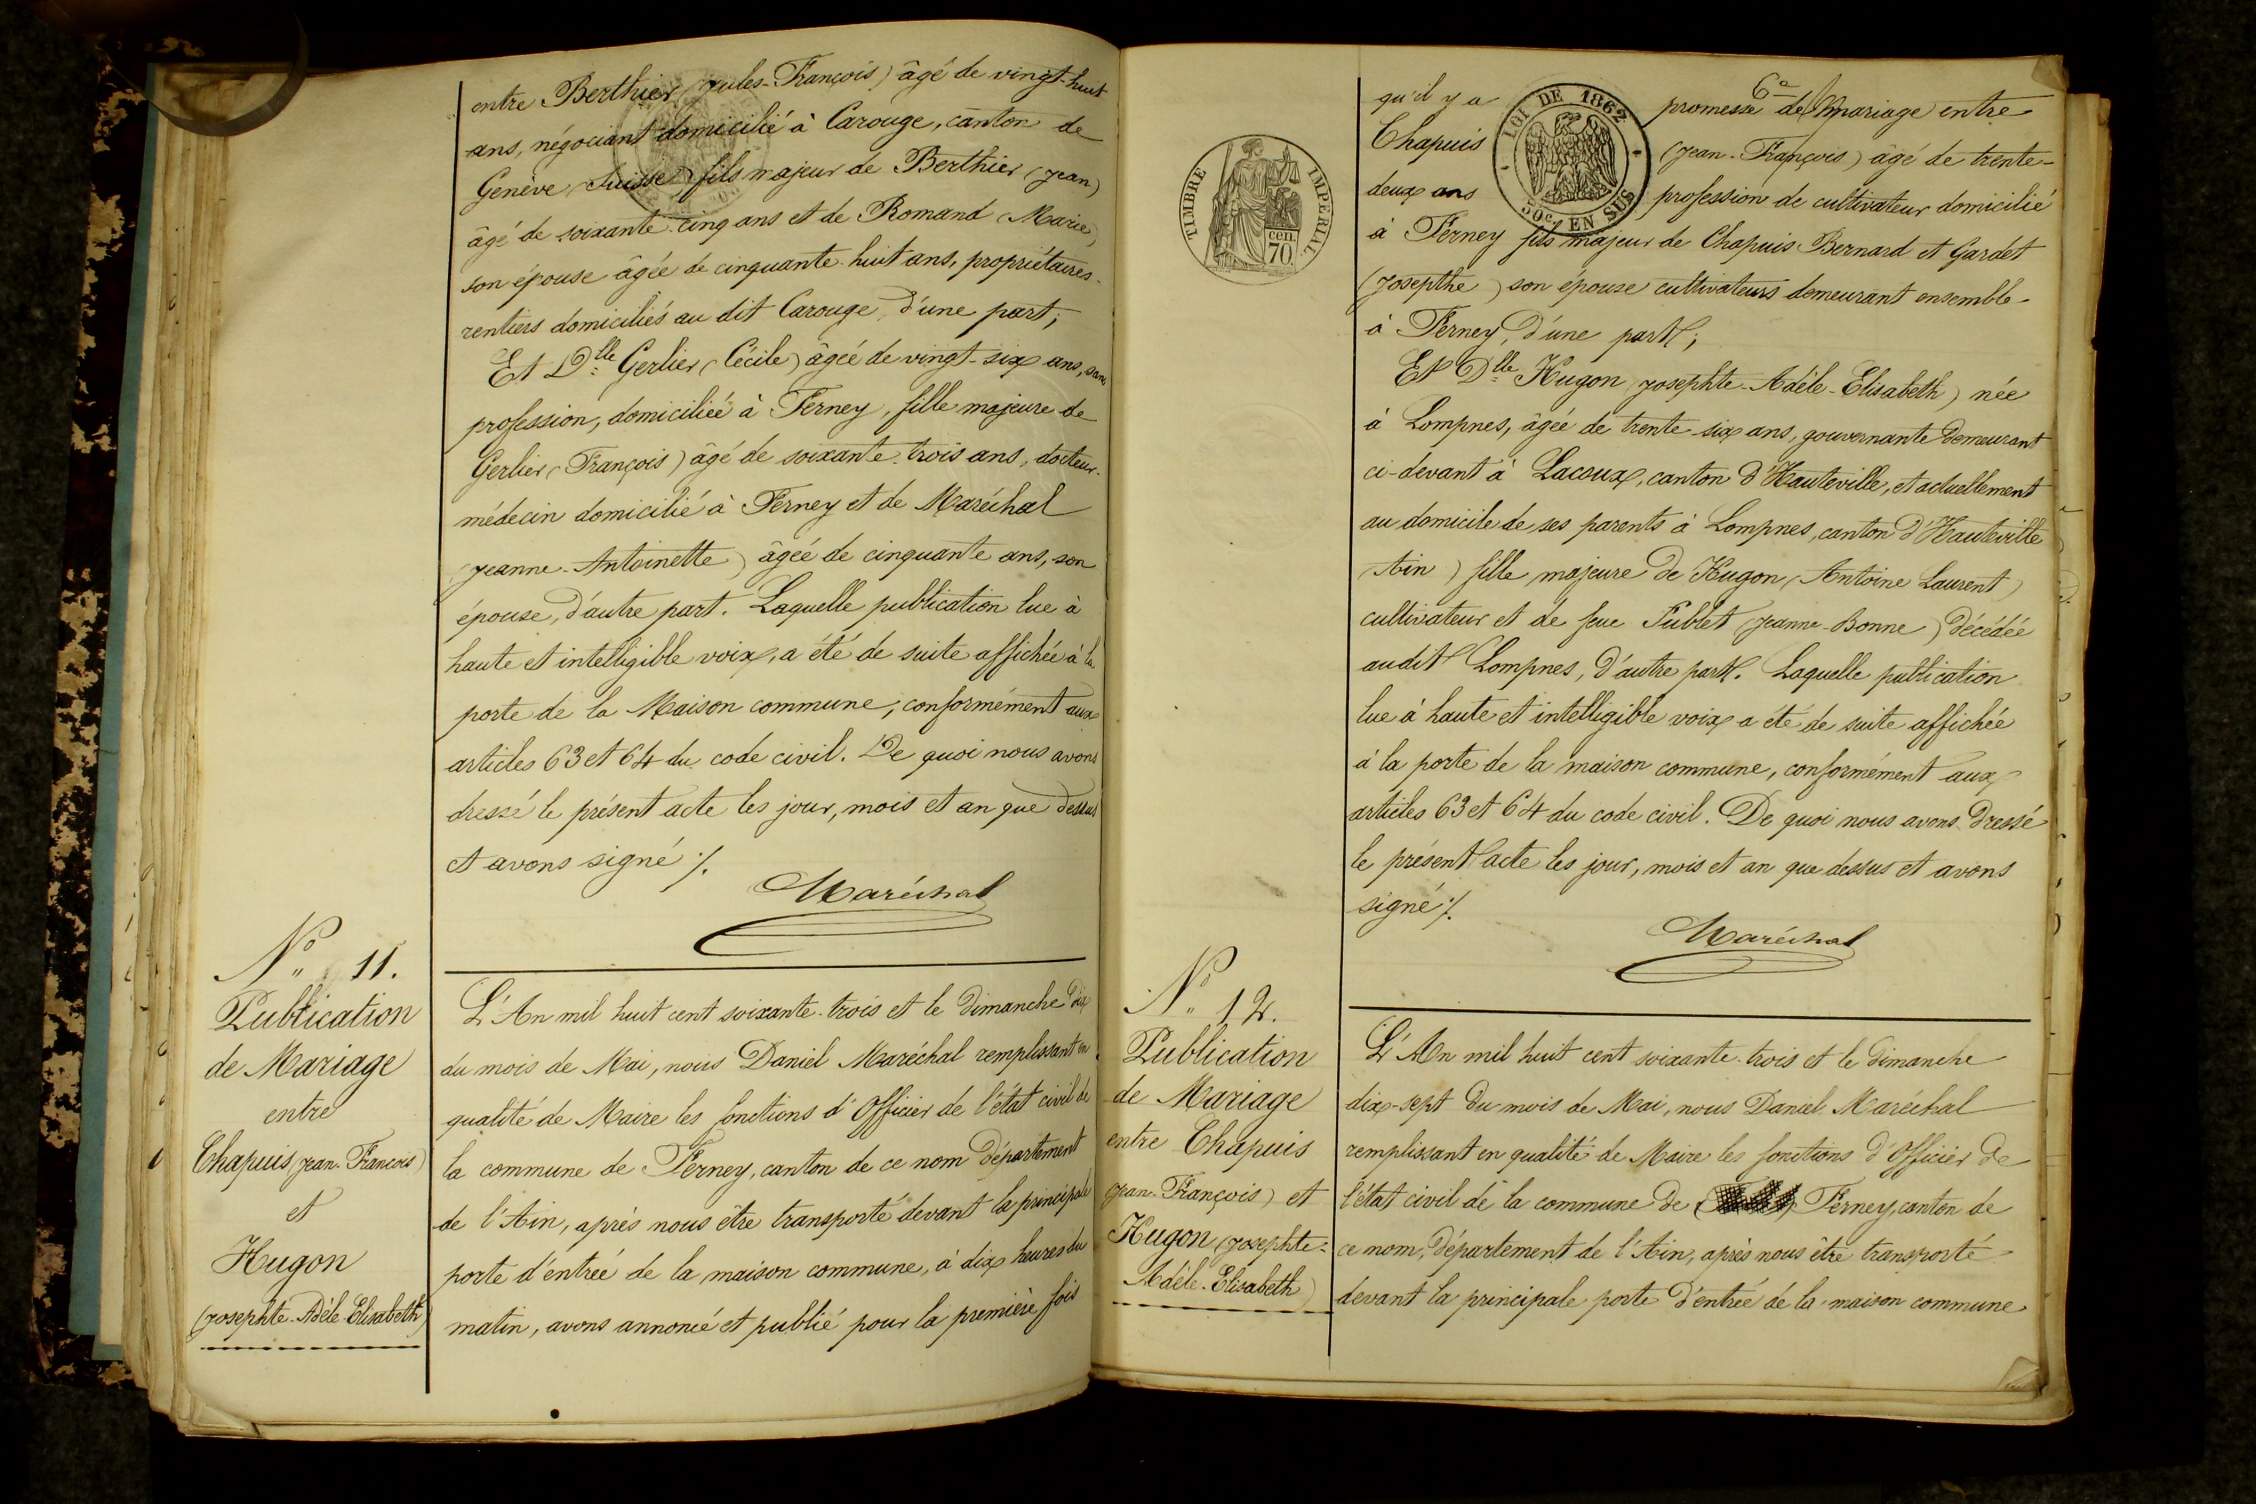 entre Berthier (Jules-François) âgé de vingt-huit
ans, négociant domicilié à Carouge, canton de
Genève (Suisse) fils majeur de Berthier (Jean)
âgé de soixante-cinq ans et de Romand (Marie)
son épouse âgée de cinquante-huit ans, propriétaires-
rentiers domiciliés au dit Carouge, d'une part;
Et Dlle Gerlier (Cécile) âgée de vingt-six ans, sans
profession, domiciliée à Ferney, fille majeure de
Gerlier (François) âgé de soixante-trois ans, docteur-
médecin domicilié à Ferney et de Maréchal
(Jeanne-Antoinette) âgée de cinquante ans, son
épouse, d'autre part. Laquelle publication lue à
haute et intelligible voix, a été de suite affichée à la
porte de la Maison commune, conformément aux
articles 63 et 64 du code civil. De quoi nous avons
dressé le présent acte les jour, mois et an que dessus
et avons signé ./.
Maréchal
No 11.
Publication
de Mariage
entre
Chapuis (Jean-François)
et
Hugon
(Josephte-Adèle-Elisabeth)
L'An mil huit cent soixante-trois et le dimanche dix
du mois de Mai, nous Daniel Maréchal remplissant en
qualité de Maire les fonctions d'Officier de l'état civil de
la commune de Ferney, canton de ce nom département
de l'Ain, après nous être transporté devant la principale
porte d'entrée de la maison commune, à dix heures du
matin, avons annoncé et publié pour la première fois
6e
TIMBRE IMPÉRIAL
cen. 70.
LOI DE 1862
50c. EN SUS
qu'il y a promesse de mariage entre
Chapuis (Jean-François) âgé de trente-
deux ans profession de cultivateur domicilié
à Ferney fils majeur de Chapuis Bernard et Gardet
(Josepthe) son épouse cultivateurs demeurant ensemble
à Ferney, d'une part;
Et Dlle Hugon (Josephte-Adèle-Elisabeth) née
à Lompnes, âgée de trente-six ans, gouvernante demeurant
ci-devant à Lacoux, canton d'Hauteville, et actuellement
au domicile de ses parents à Lompnes, canton d'Hauteville
(Ain) fille majeure de Hugon (Antoine Laurent)
cultivateur et de feue Publet (Jeanne-Bonne) décédée
audit Lompnes, d'autre part. Laquelle publication
lue à haute et intelligible voix a été de suite affichée
à la porte de la maison commune, conformément aux
articles 63 et 64 du code civil. De quoi nous avons dressé
le présent acte les jour, mois et an que dessus et avons
signé ./.
Maréchal
No 12.
Publication
de Mariage
entre Chapuis
(Jean-François) et
Hugon (Josephte-
Adèle-Elisabeth)
L'An mil huit cent soixante-trois et le dimanche
dix-sept du mois de Mai, nous Daniel Maréchal
remplissant en qualité de Maire les fonctions d'Officier de
l'état civil de la commune de Ferney, canton de
ce nom, département de l'Ain, après nous être transporté
devant la principale porte d'entrée de la maison commune